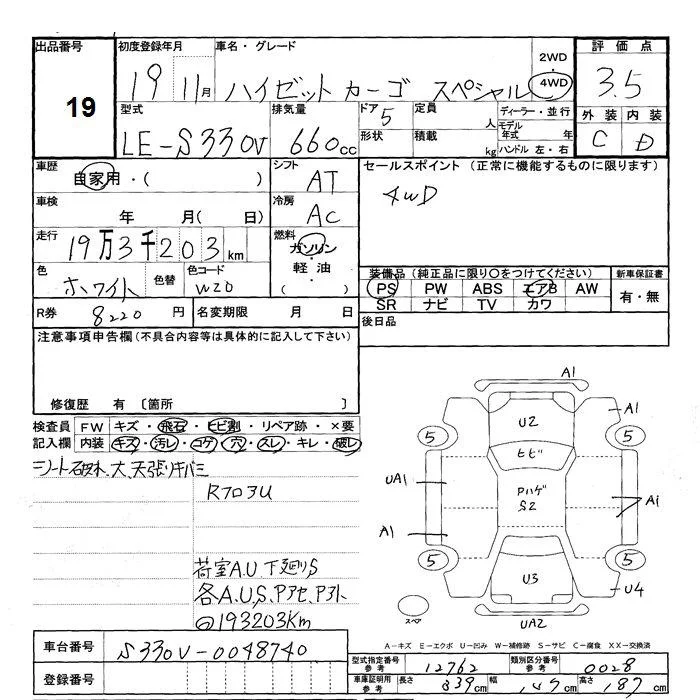 出品番号 初度登録年月 車名・グレード 2WD 評価点
19 19 11月 ハイゼットカーゴ スペシャル 4WD 3.5
型式 排気量 ドア 5 定員 人 ディーラー・並行 外装 内装
LE-S330V 660cc 形状 積載 kg モデル年式 年 C D
ハンドル 左・右
車歴 自家用・( ) シフト AT セールスポイント (正常に機能するものに限ります)
車検 年 月(日) 冷房 AC 4WD
走行 19万3千203km 燃料 ガソリン・軽油・( )
色 ホワイト 色替 色コード W20 装備品(純正品に限り〇をつけてください) 新車保証書
PS PW ABS エアB AW 有・無
SR ナビ TV カワ
R券 8220円 名変期限 月 日 後日品
注意事項申告欄(不具合内容等は具体的に記入して下さい)
修復歴 有 〔箇所 〕
検査員 FW キズ・飛石・ヒビ割・リペア跡・×要
記入欄 内装 キズ・汚レ・コゲ・穴・スレ・キレ・破レ
シート破れ.大.天張りキバミ
Rフロ3U
荷室A.U.下廻りS
各A.U.S.Pアセ.Pアト
193203Km
A1
U2 A1
5 5
ヒビ
UA1 Pハゲ
S2 A1
A1
5 5
U3 U4
スペア UA2
A-キズ E-エクボ U-凹み W-補修跡 S-サビ C-腐食 XX-交換済
車台番号 S330V-0048740
登録番号
型式指定番号 参考 12762 類別区分番号 参考 0028
車庫証明用 参考 長さ 339cm 幅 147cm 高さ 187cm